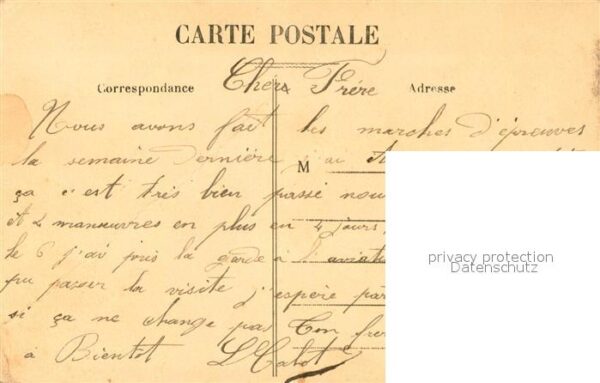 CARTE POSTALE
Correspondance
Adresse
Cher Frère
Nous avons fait les marches d'épreuves
la semaine dernière j'ai
M
ça c'est très bien passé nou
et 2 manœuvres en plus en 4 jours
le 6 j'ai pris la garde à l'aviati
pu passer la visite j'espère par
si ça ne change pas Ton frer
à Bientot
privacy protection
Datenschutz